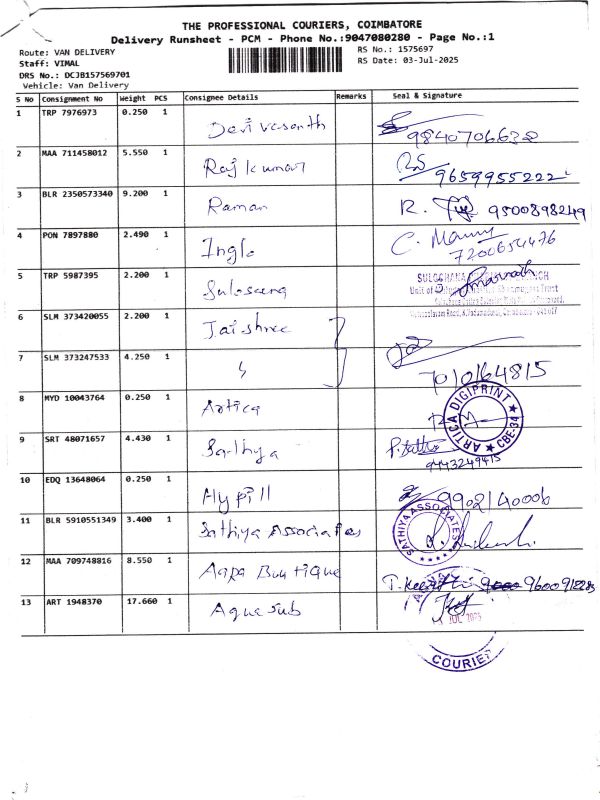 THE PROFESSIONAL COURIERS, COIMBATORE
Delivery Runsheet - PCM - Phone No.:9047080280 - Page No.:1
Route: VAN DELIVERY
RS No.: 1575697
Staff: VIMAL
RS Date: 03-Jul-2025
DRS No.: DCJB157569701
Vehicle: Van Delivery
S No Consignment No Weight PCS Consignee Details Remarks Seal & Signature
1 TRP 7976973 0.250 1 Devi vasanth 9840706632
2 MAA 711458012 5.550 1 Rajkumar 9659955222
3 BLR 2350573340 9.200 1 Raman R. 9500898249
4 PON 7897880 2.490 1 Inglo C. 7200654476
5 TRP 5987395 2.200 1
6 SLM 373420055 2.200 1 Jaishree
7 SLM 373247533 4.250 1 " 7010164815
8 MYD 10043764 0.250 1 Artica ARTICA DIGIPRINT CBE-34
9 SRT 48071657 4.430 1 Sathya 9443249415
10 EDQ 13648064 0.250 1 Hypill 9902140006
11 BLR 5910551349 3.400 1 Sathiya Associates SATHIYA ASSOCIATES
12 MAA 709748816 8.550 1 Aapa Boutique
13 ART 1948370 17.660 1 Aquasub
JUL 2025
COURIER